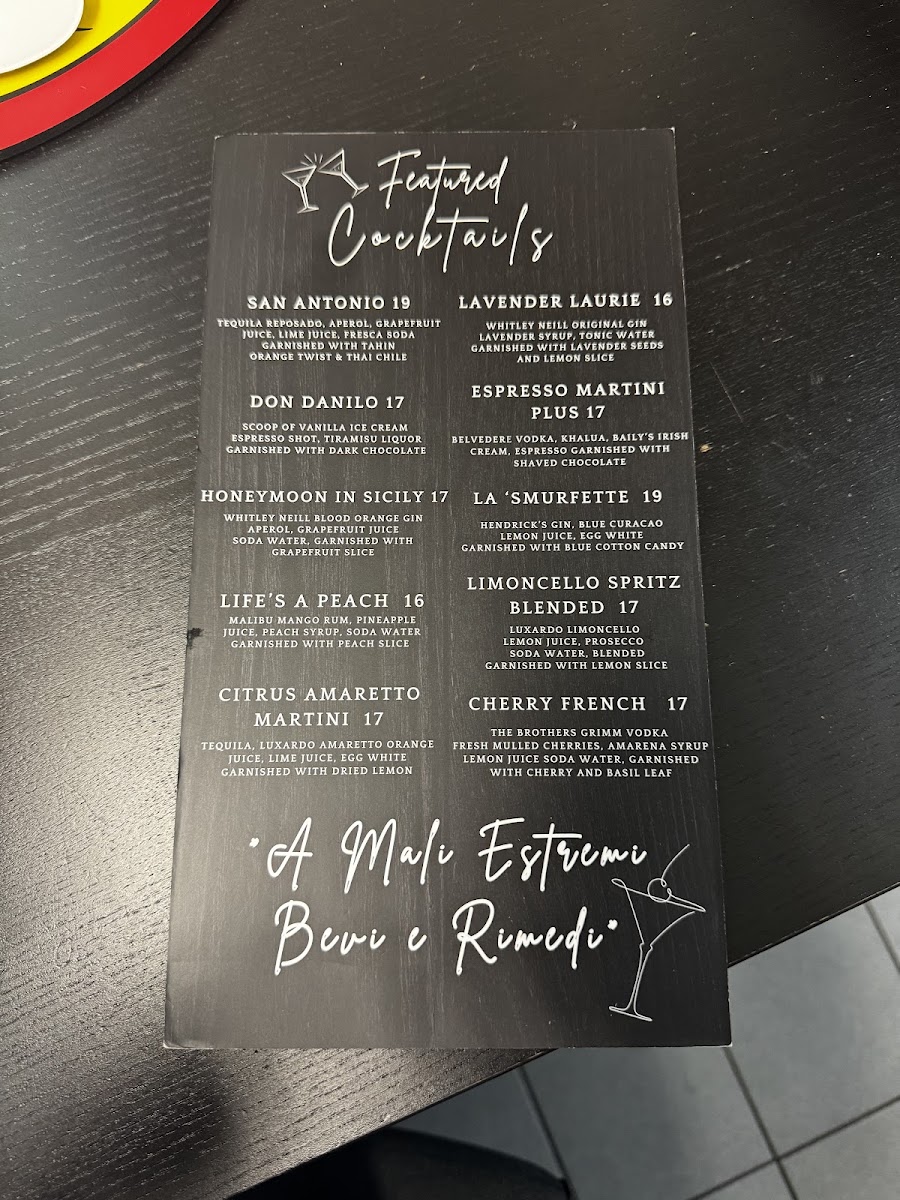 Featured
Cocktails
SAN ANTONIO 19
TEQUILA REPOSADO, APEROL, GRAPEFRUIT
JUICE, LIME JUICE, FRESCA SODA
GARNISHED WITH TAHIN
ORANGE TWIST & THAI CHILE
DON DANILO 17
SCOOP OF VANILLA ICE CREAM
ESPRESSO SHOT, TIRAMISU LIQUOR
GARNISHED WITH DARK CHOCOLATE
HONEYMOON IN SICILY 17
WHITLEY NEILL BLOOD ORANGE GIN
APEROL, GRAPEFRUIT JUICE
SODA WATER, GARNISHED WITH
GRAPEFRUIT SLICE
LIFE'S A PEACH 16
MALIBU MANGO RUM, PINEAPPLE
JUICE, PEACH SYRUP, SODA WATER
GARNISHED WITH PEACH SLICE
CITRUS AMARETTO
MARTINI 17
TEQUILA, LUXARDO AMARETTO ORANGE
JUICE, LIME JUICE, EGG WHITE
GARNISHED WITH DRIED LEMON
LAVENDER LAURIE 16
WHITLEY NEILL ORIGINAL GIN
LAVENDER SYRUP, TONIC WATER
GARNISHED WITH LAVENDER SEEDS
AND LEMON SLICE
ESPRESSO MARTINI
PLUS 17
BELVEDERE VODKA, KHALUA, BAILY'S IRISH
CREAM, ESPRESSO GARNISHED WITH
SHAVED CHOCOLATE
LA 'SMURFETTE 19
HENDRICK'S GIN, BLUE CURACAO
LEMON JUICE, EGG WHITE
GARNISHED WITH BLUE COTTON CANDY
LIMONCELLO SPRITZ
BLENDED 17
LUXARDO LIMONCELLO
LEMON JUICE, PROSECCO
SODA WATER, BLENDED
GARNISHED WITH LEMON SLICE
CHERRY FRENCH 17
THE BROTHERS GRIMM VODKA
FRESH MULLED CHERRIES, AMARENA SYRUP
LEMON JUICE SODA WATER, GARNISHED
WITH CHERRY AND BASIL LEAF
"A Mali Estremi
Bevi e Rimedi"